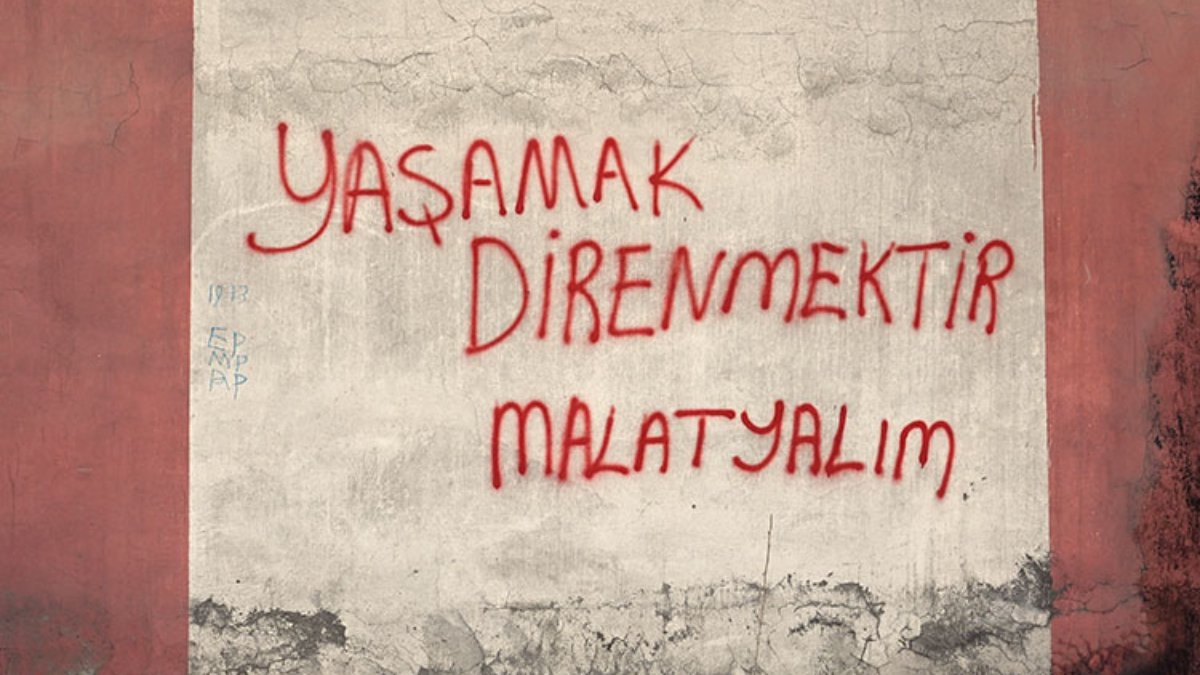 YAŞAMAK
DİRENMEKTİR
MALATYALIM
EP
MP
AP